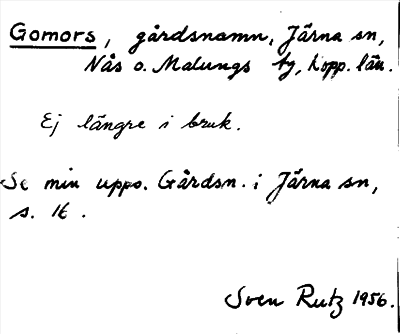 Gomors, gårdsnamn, Järna sn,
Nås o. Malungs tg, Kopp. län.
Ej längre i bruk.
Se min upps. Gårdsn. i Järna sn,
s. 16.
Sven Rutz 1956.